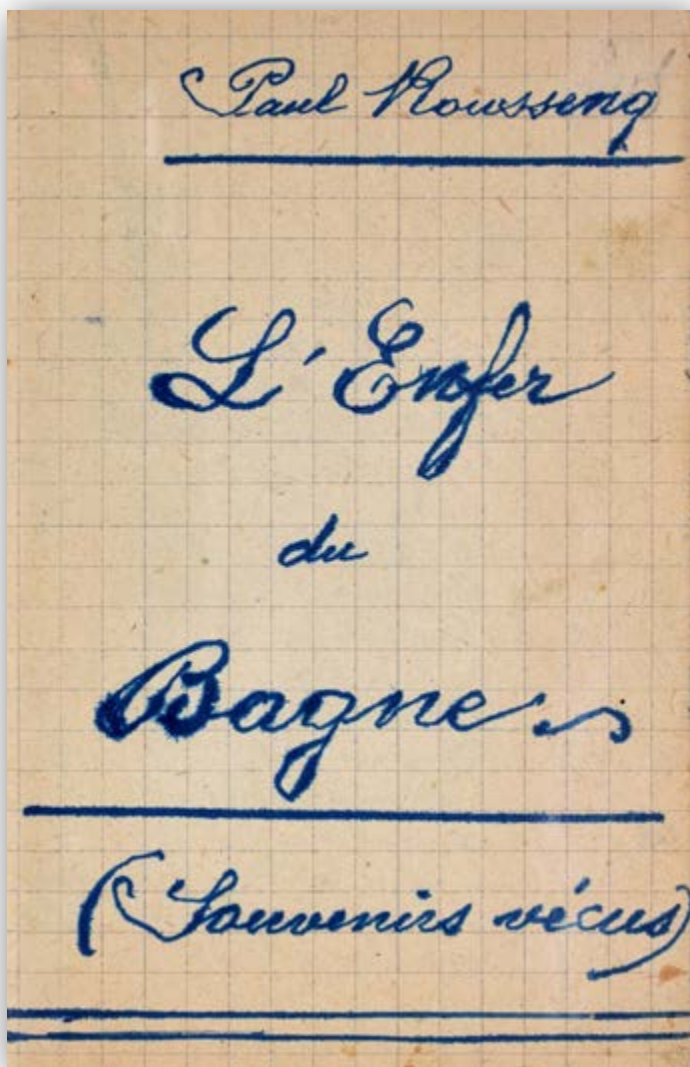 Paul Roussenq
L'Enfer
du
Bagne
(Souvenirs vécus)